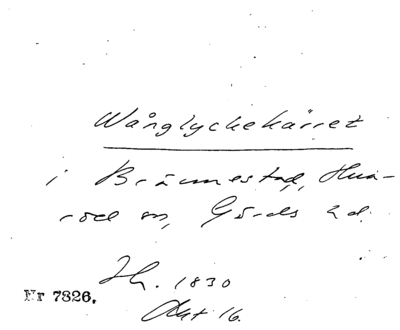 Wånglyckekärret
i Brännestad, Hua-
röd sn, Gärds hd.
Sk. 1830
Akt 16.
Nr 7326.